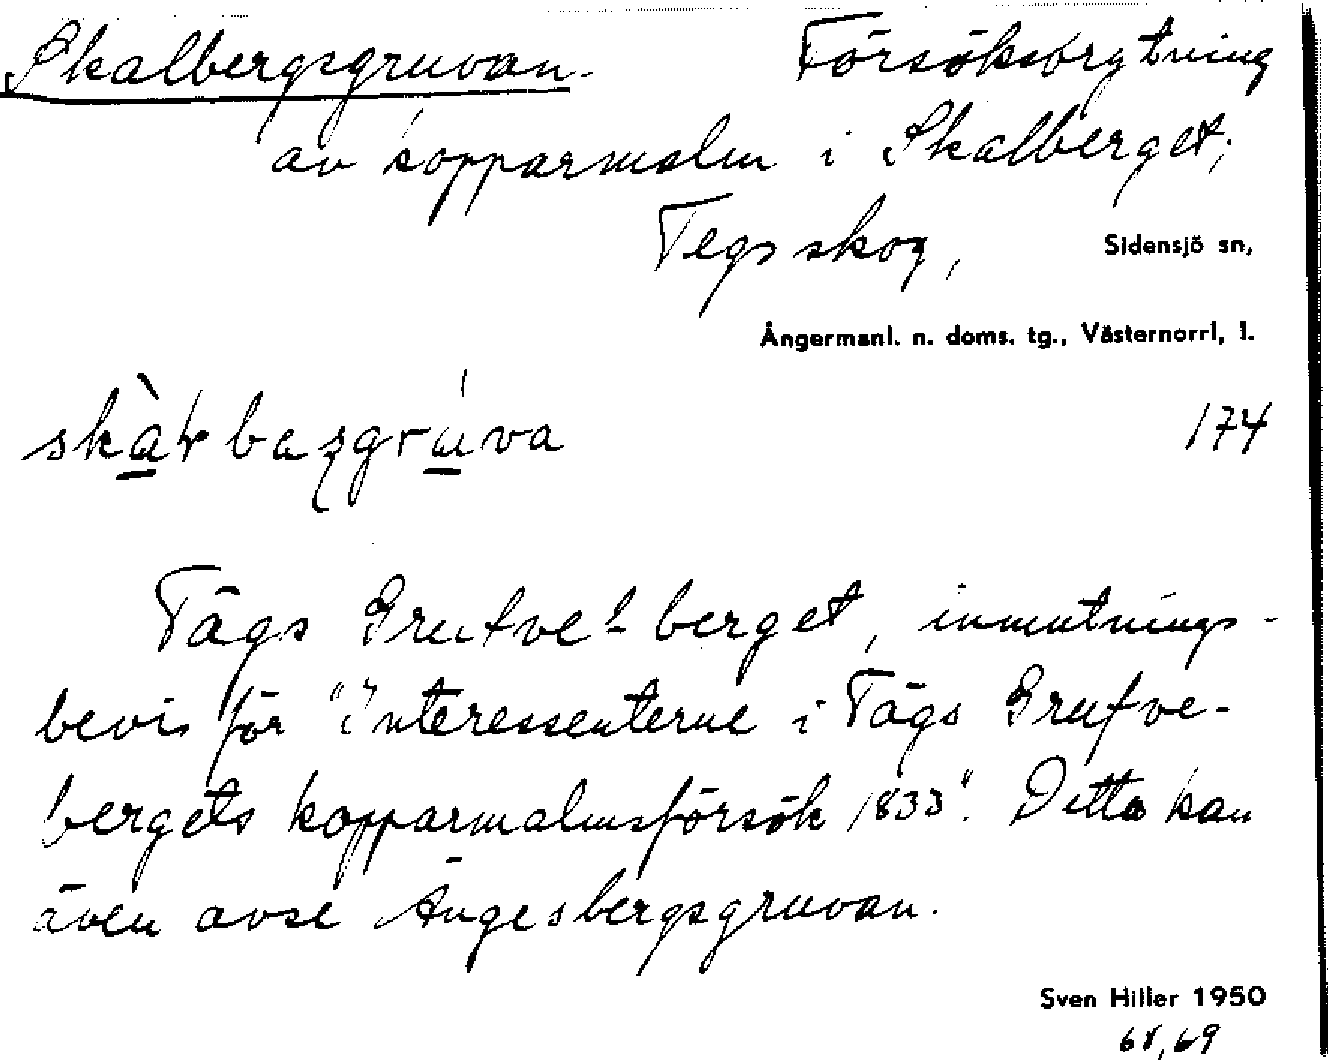 Skalbergsgruvan. Försöksbrytning
av kopparmalm i Skalberget,
Tegsskog, Sidensjö sn,
Ångermanl. n. doms. tg., Västernorrl. l.
174
Tägs Grufve- berget, inmutnings-
bevis för "Interessenterne i Tägs Grufve-
bergets kopparmalmsförsök 1833". Detta kan
även avse Ängesbergsgruvan.
Sven Hiller 1950
68,69